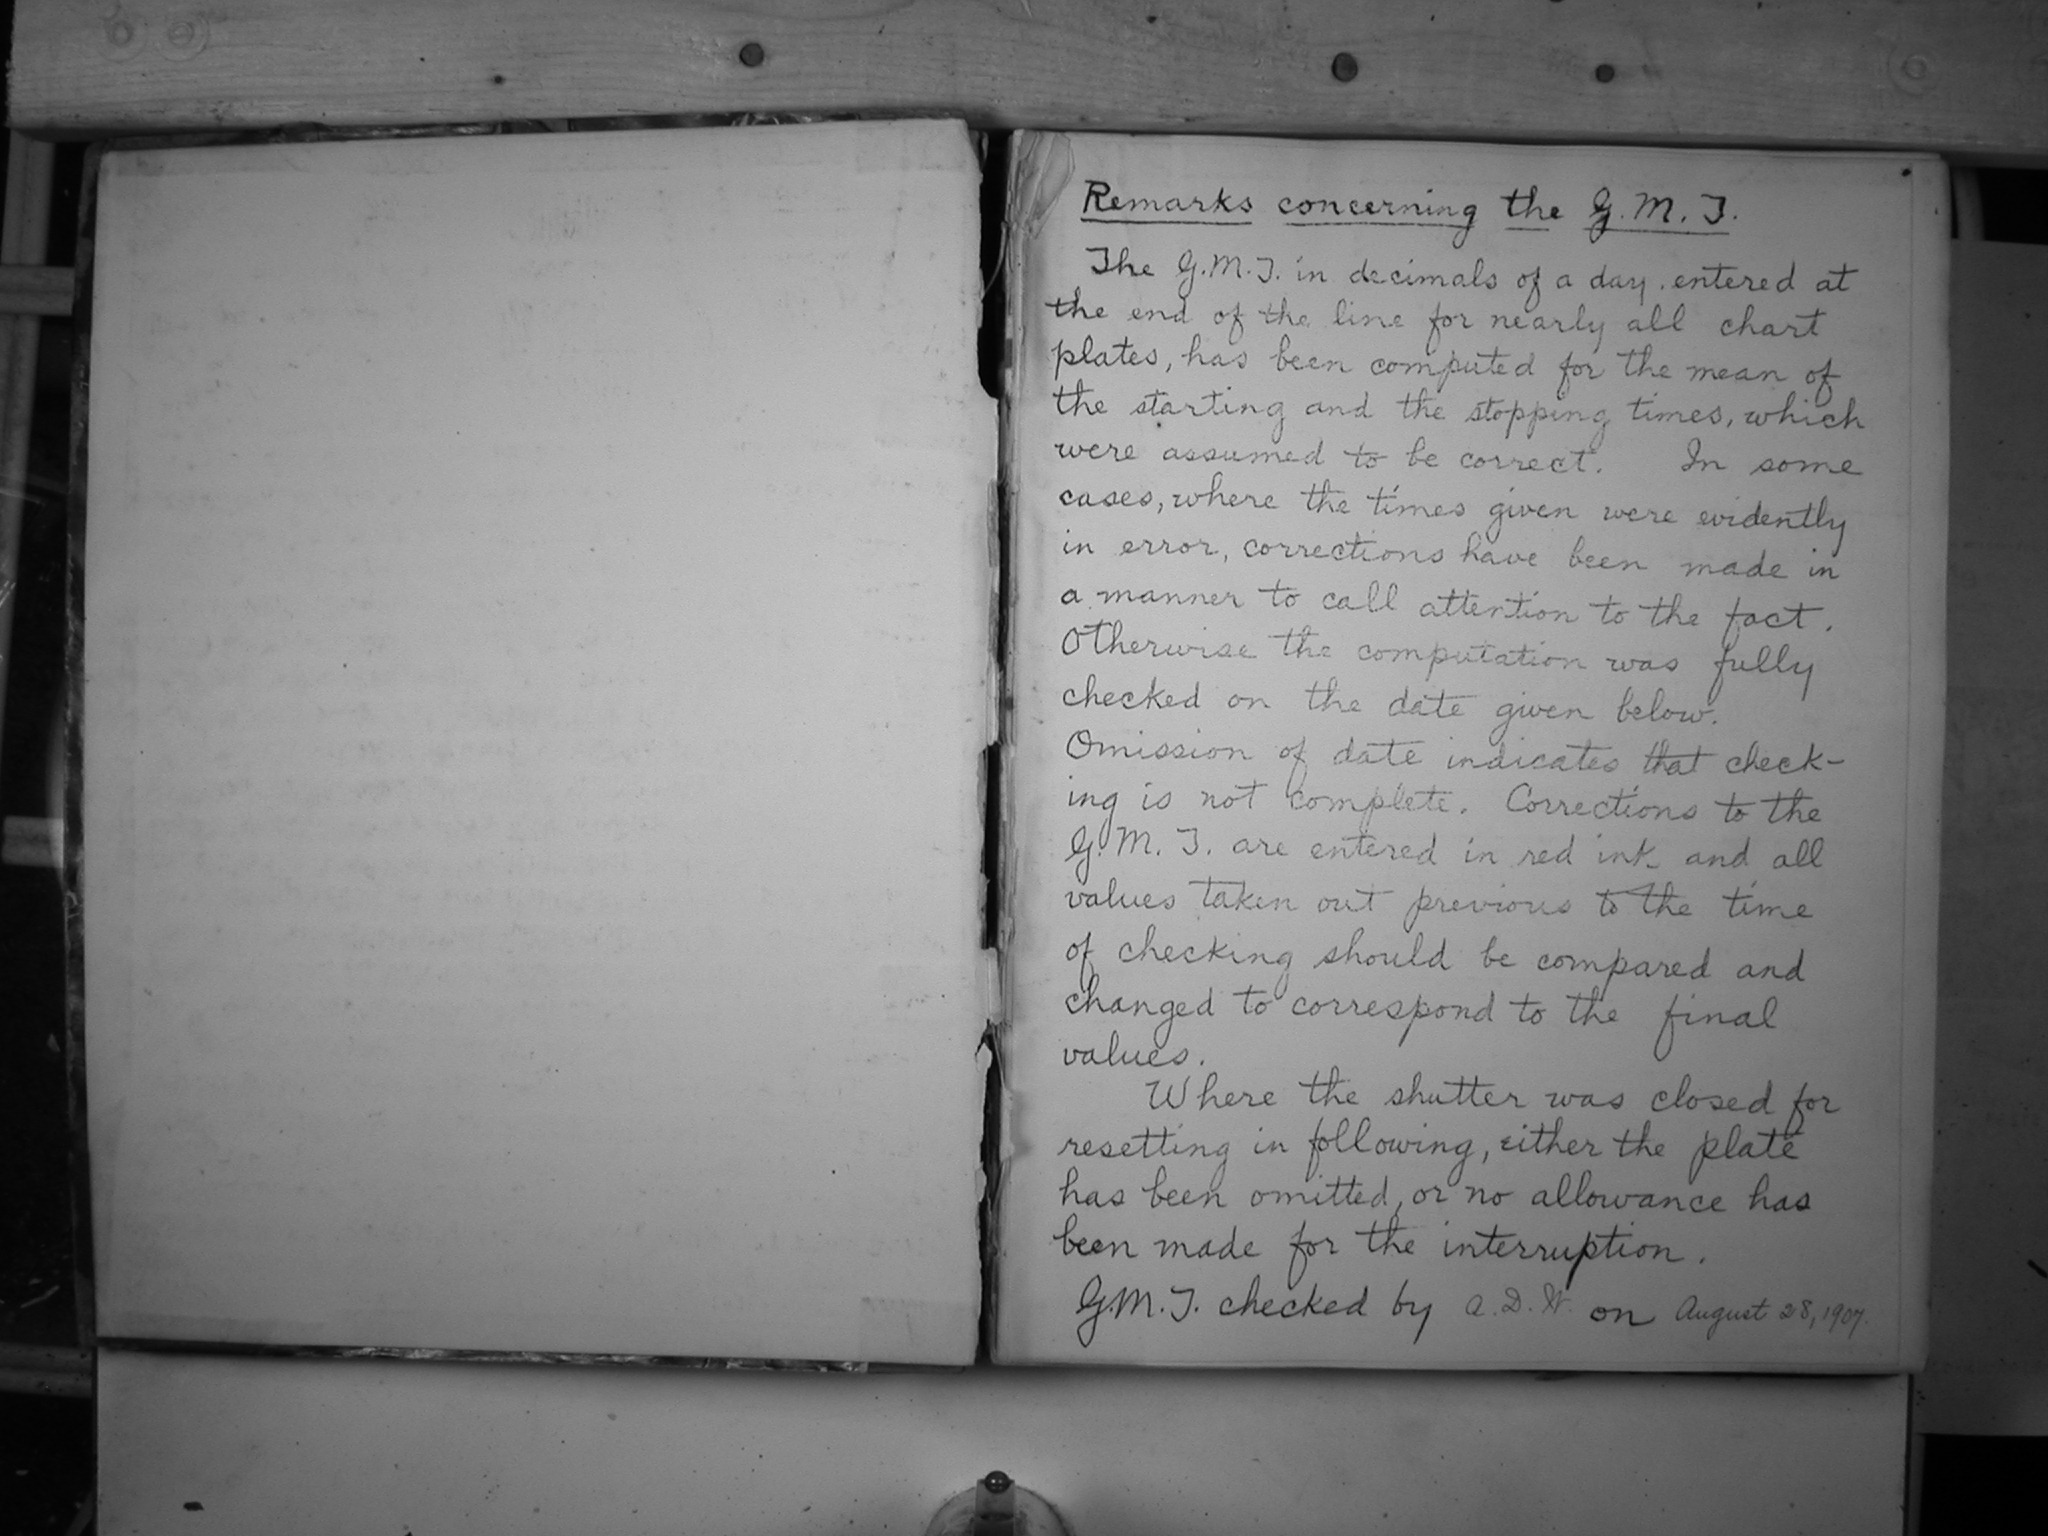 Remarks concerning the G.M.T.
The G.M.T. in decimals of a day, entered at
the end of the line for nearly all chart
plates, has been computed for the mean of
the starting and the stopping times, which
were assumed to be correct. In some
cases, where the times given were evidently
in error, corrections have been made in
a manner to call attention to the fact.
Otherwise the computation was fully
checked on the date given below.
Omission of date indicates that check-
ing is not complete. Corrections to the
G.M.T. are entered in red ink and all
values taken out previous to the time
of checking should be compared and
changed to correspond to the final
values.
Where the shutter was closed for
resetting in following, either the plate
has been omitted, or no allowance has
been made for the interruption.
G.M.T. checked by A.D.W. on August 28, 1907.